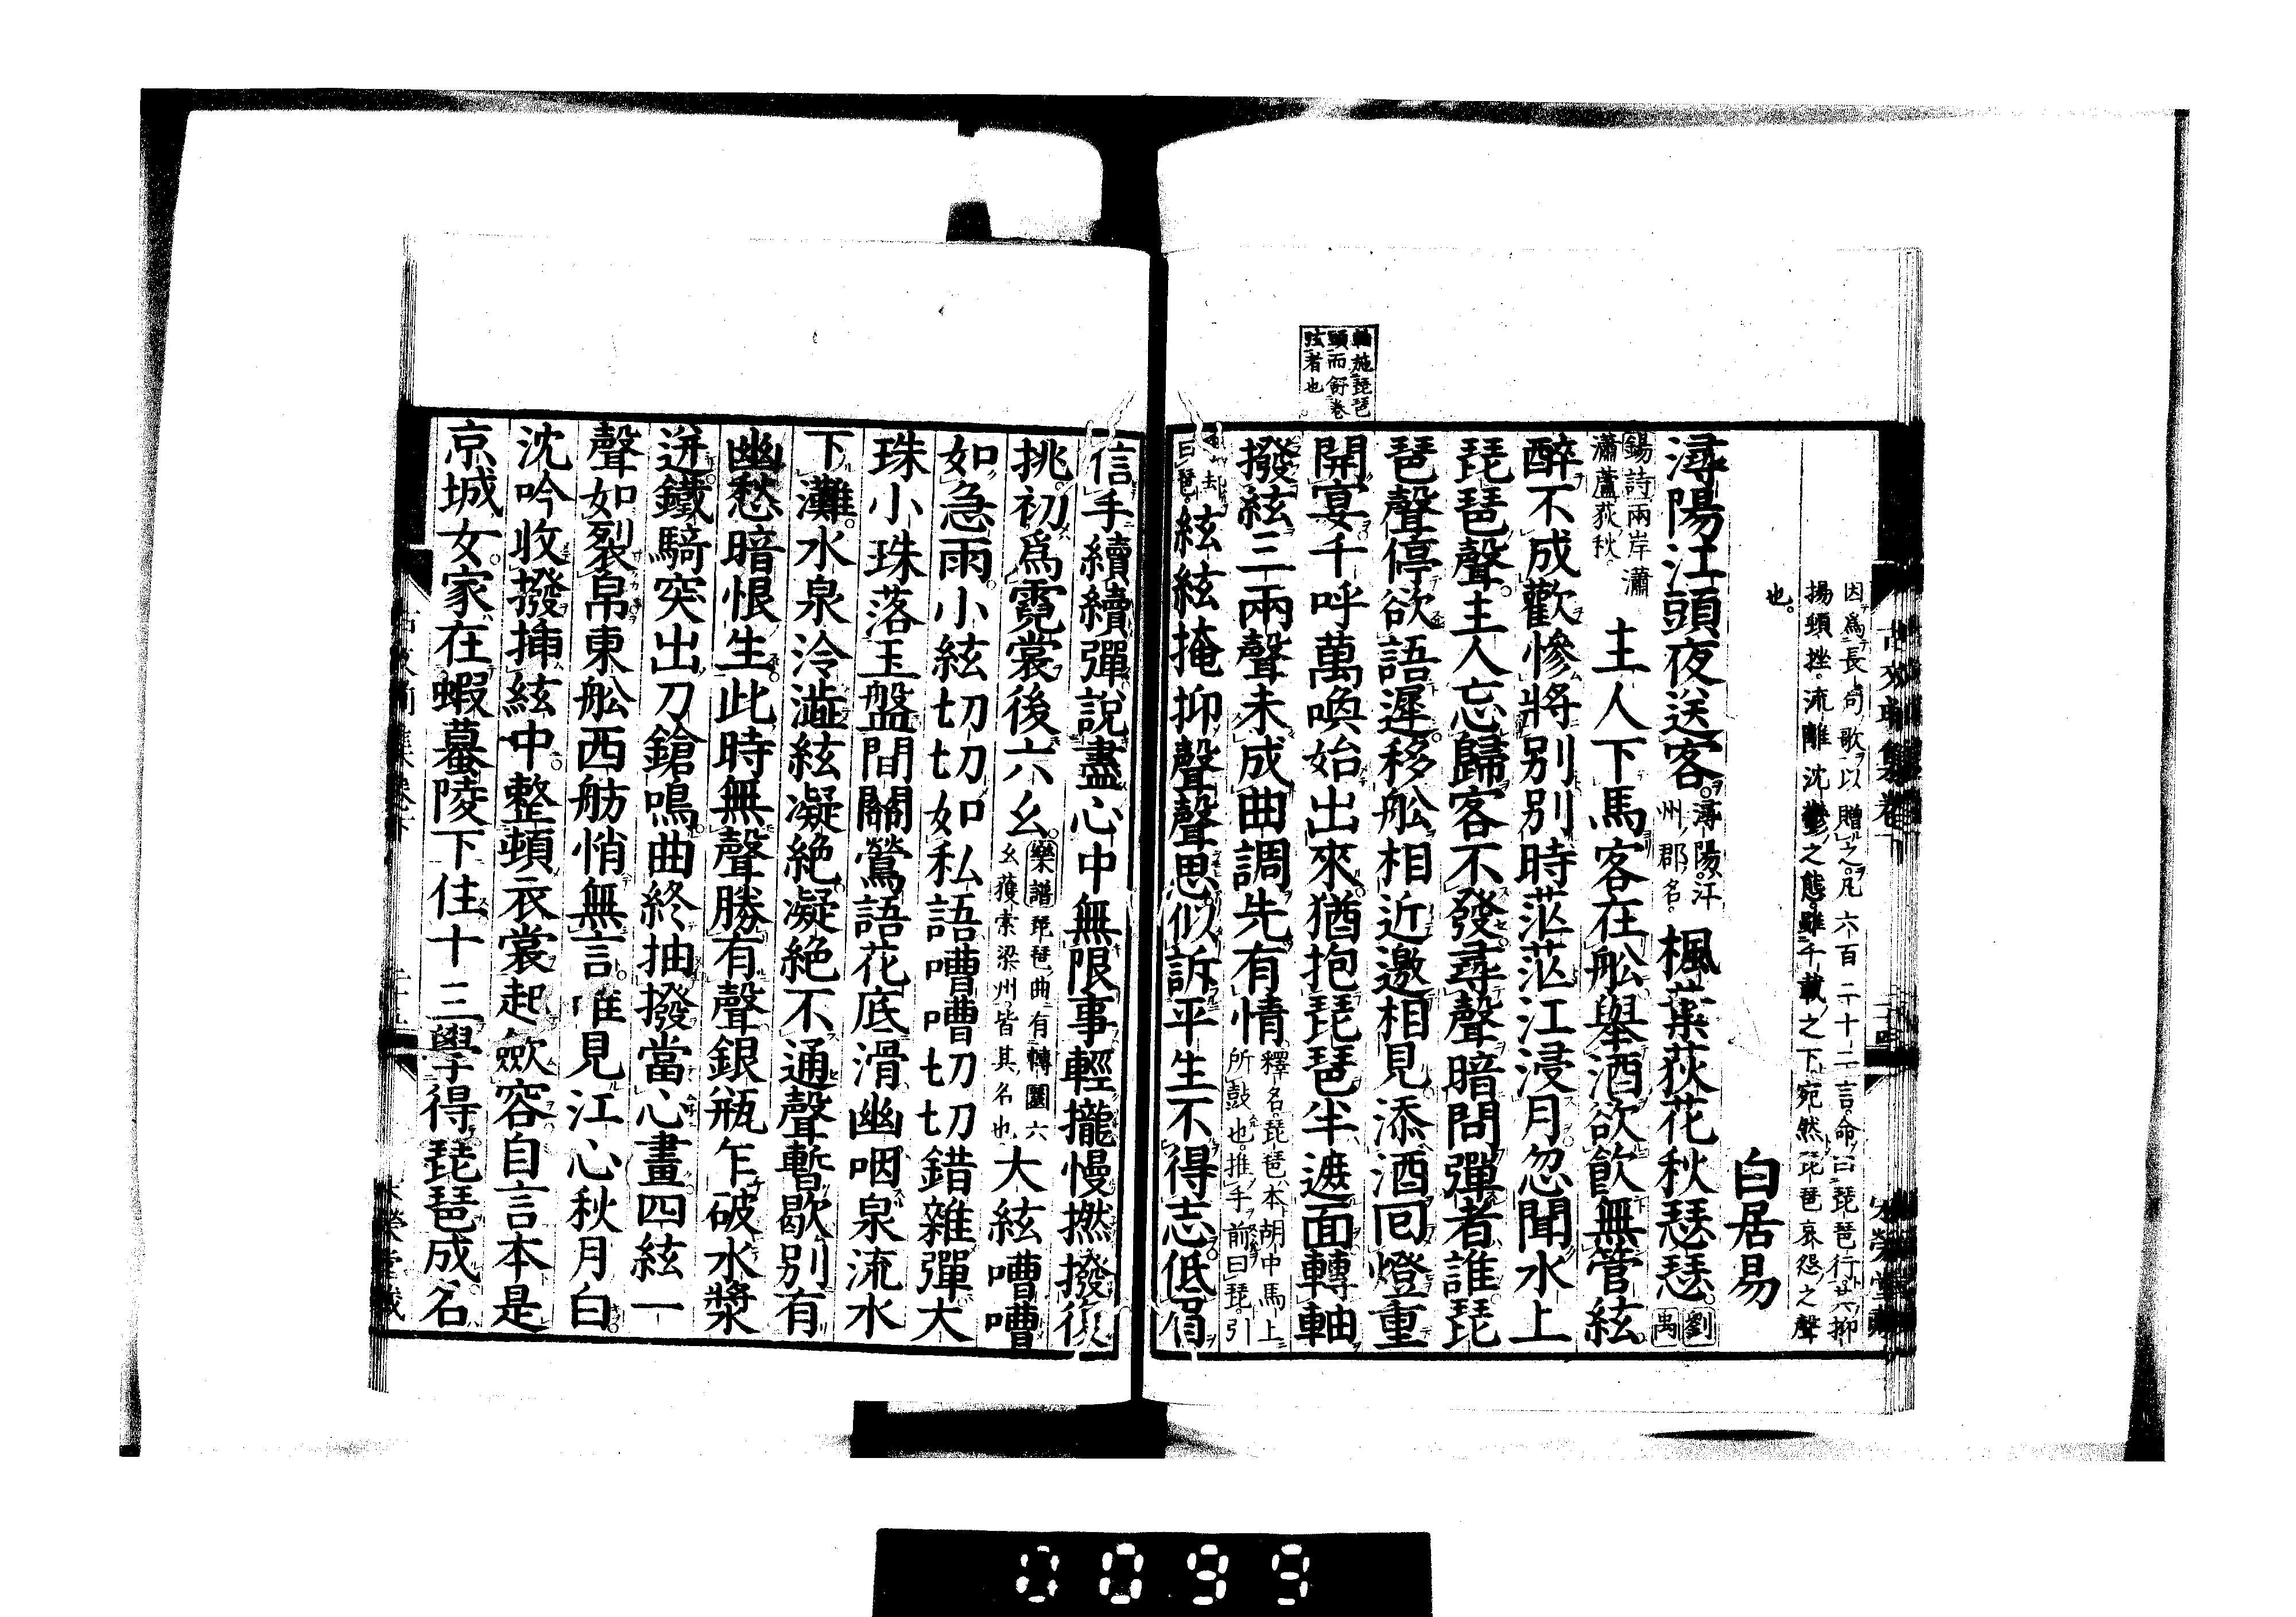 軸施琵琶
頭而舒卷
弦者也
因爲長句歌以贈之凡六百二十二言命曰琵琶行
揚頓挫流離沈鬱之態雖千載之下宛然琵琶哀怨之聲
也
白居易
潯陽江頭夜送客潯陽江州郡名楓葉荻花秋瑟瑟劉禹
錫詩兩岸瀟瀟蘆荻秋主人下馬客在舩舉酒欲飮無管絃
醉不成歡慘將別別時茫茫江浸月忽聞水上
琵琶聲主人忘歸客不發尋聲暗問彈者誰琵
琶聲停欲語遲移舩相近邀相見添酒回燈重
開宴千呼萬喚始出來猶抱琵琶半遮面轉軸
撥絃三兩聲未成曲調先有情釋名琵琶本胡中馬上所鼓也推手前曰琵引
手却曰琶絃絃掩抑聲聲思似訴平生不得志低眉
信手續續彈說盡心中無限事輕攏慢撚撥復
挑初爲霓裳後六幺樂譜琵琶曲有轉關六幺獲索梁州皆其名也大絃嘈嘈
如急雨小絃切切如私語嘈嘈切切錯雜彈大
珠小珠落玉盤間關鶯語花底滑幽咽泉流水
下灘水泉泠澁絃凝絶凝絶不通聲暫歇別有
幽愁暗恨生此時無聲勝有聲銀瓶乍破水漿
迸鐵騎突出刀鎗鳴曲終抽撥當心畫四絃一
聲如裂帛東舩西舫悄無言唯見江心秋月白
沈吟收撥挿絃中整頓衣裳起斂容自言本是
京城女家在蝦蟇陵下住十三學得琵琶成名